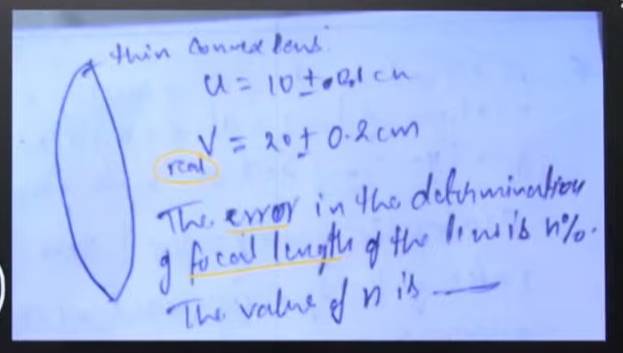 thin convex lens
u = 10 ± 0.1 cm
v = 20 ± 0.2 cm
real
The error in the determination
of focal length of the lens is n%.
The value of n is —